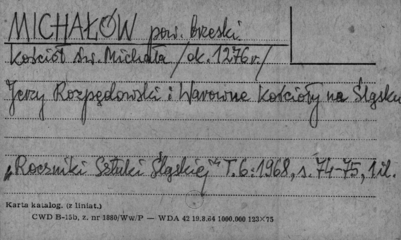 MICHAŁÓW pow. brzeski
Kościół św. Michała /ok. 1276 r./
Jerzy Rozpędowski : Warowne kościoły na Śląsku
„Roczniki Sztuki Śląskiej" T. 6: 1968, s. 74-75, 1 il.
Karta katalog. (z liniat.)
CWD B-15b, z. nr 1880/Ww/P — WDA 42 10.8.64 1000.000 123×75